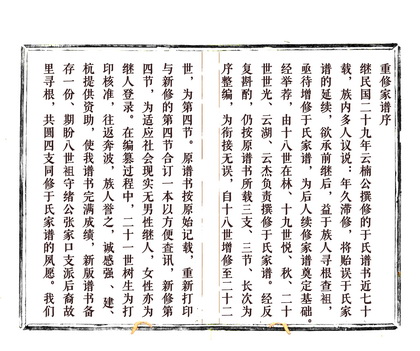 重修家谱序
继民国二十九年云楠公撰修的于氏谱书近七十
载，族内多人议说：年久滞修，将贻误于氏家
谱的延续，欲承前继后，益于族人寻根查祖，
亟待增修于氏家谱，为后人续修家谱奠定基础。
经举荐，由十八世在林、十九世悦、秋、二十
世世光、云湖、云杰负责撰修于氏家谱。经反
复斟酌，仍按原谱书所载三支、三节、长次为
序整编，为衔接无误，自十八世增修至二十二
世，为第四节。原谱书按原始记载，重新打印
与新修的第四节合订一本以方便查讯，新修第
四节，为适应社会现实无男性继人，女性亦为
继人登录。在编纂过程中，二十一世树生为打
印核准，往返奔波，族人誉之，诚感强、建、
杭提供资助，使我谱书完满成绩，新版谱书备
存一份、期盼八世祖守绪公张家口支派后裔故
里寻根，共圆四支同修于氏家谱的夙愿。我们